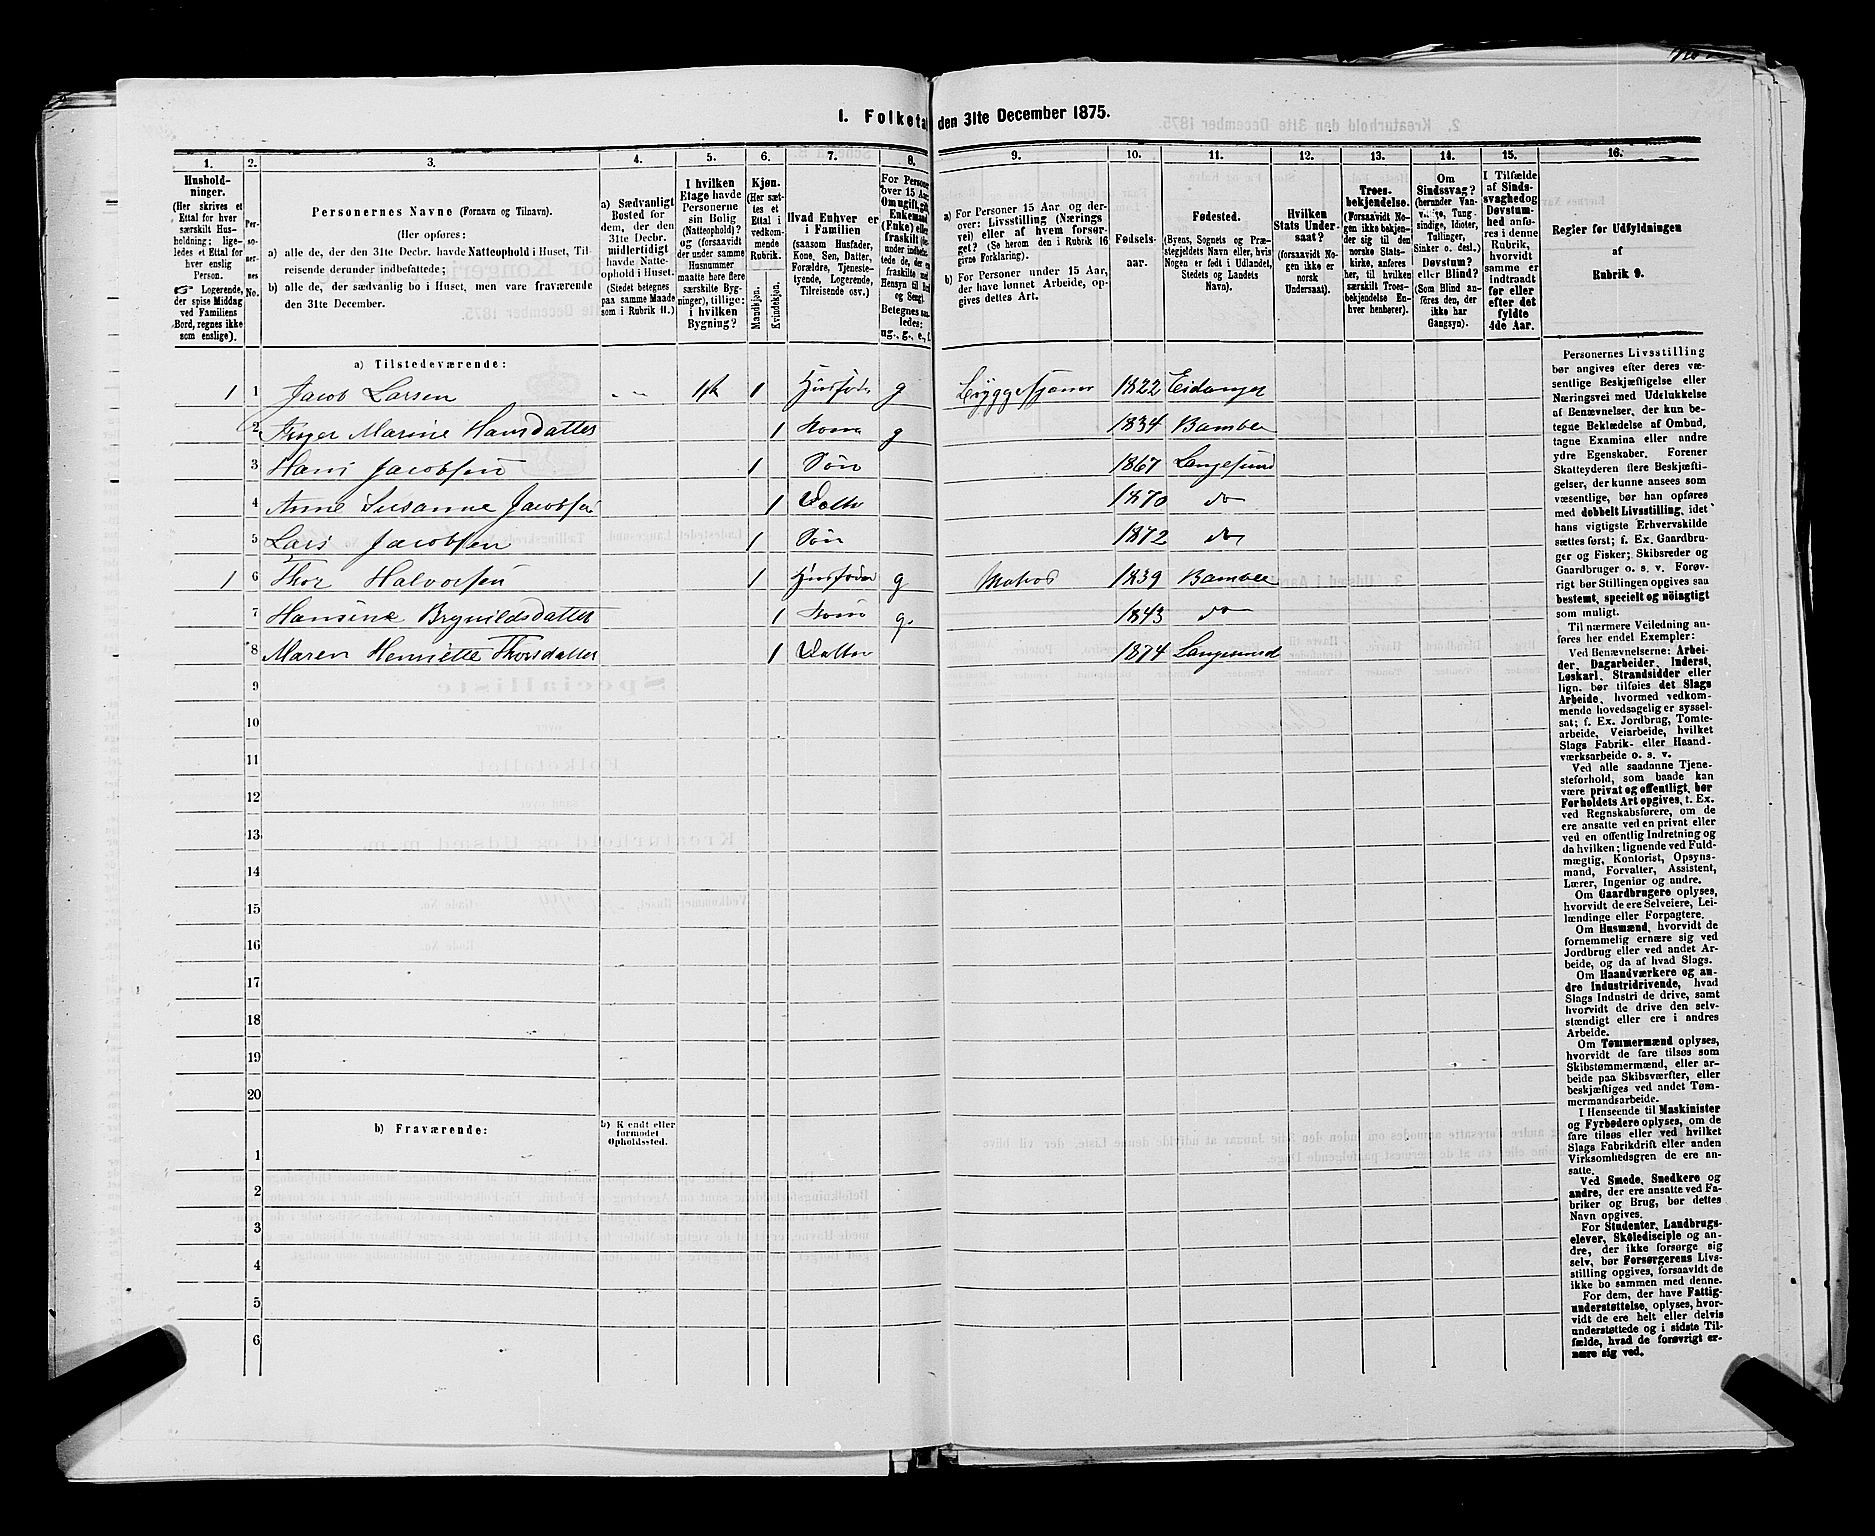 1. Folketal den 31te December 1875.
1. 2. 3. 4. 5. 6. 7. 8. 9. 10. 11. 12. 13. 14. 15. 16.
Hushold-
ninger.
(Her skrives et
Ettal for hver
særskilt Hus-
holdning; lige-
ledes et Ettal for
hver enslig
Person.
☞ Logerende,
der spise Middag
ved Familiens
Bord, regnes ikke
som enslige).
Per-
so-
ner-
nes
No.
Personernes Navne (Fornavn og Tilnavn).
(Her opføres:
a) alle de, der den 31te Decbr. havde Natteophold i Huset, Til-
reisende derunder indbefattede;
b) alle de, der sædvanlig bo i Huset, men vare fraværende
den 31te December.
a) Sædvanligt
Bosted for
dem, der den
31te Decbr.
midlertidigt
havde Natte-
ophold i Huset.
(Stedet betegnes
paa samme Maade
som i Rubrik 11.)
I hvilken
Etage havde
Personerne
sin Bolig
(Natteophold)?
og (forsaavidt
der under samme
Husnummer
maatte høre flere
særskilte Byg-
ninger), tillige:
i hvilken
Bygning?
Kjøn.
(Her sæt-
tes et
Ettal i
vedkom-
mende
Rubrik.
Mandkjøn.
Kvindekjøn.
Hvad Enhver er
i Familien
(saasom Husfader,
Kone, Søn, Datter,
Forældre, Tjeneste-
tyende, Logerende,
Tilreisende osv.)
For Persone
over 15 Aar
Om ugift, gift
Enkemand
(Enke) eller
fraskilt
Betegnes saa-
ledes:
ug., g., e., f.
a) For Personer 15 Aar og der-
over: Livsstilling (Nærings
vei) eller af hvem forsør-
get? (Se herom den i Rubrik 16
givne Forklaring).
b) For Personer under 15 Aar,
der have lønnet Arbeide, op-
gives dettes Art.
Fødsels-
aar.
Fødested.
(Byens, Sognets og Præ-
stegjeldets Navn eller, hvis
Nogen er født i Udlandet,
Stedets og Landets
Navn).
Hvilken
Stats Under-
saat?
(forsaavidt No-
gen ikke er
norsk
Undersaat).
Troes-
bekjendelse.
(Forsaavidt No-
gen ikke bekjen-
der sig til den
norske Stats-
kirke, anføres
her, til hvilken
særskilt Troes-
bekjendelse En-
hver henhører).
Om
Sindssvag?
(herunder Van-
vittige, Tung-
sindige, Idioter,
Tullinger,
Sinker o. desl.)
Døvstum?
eller Blind?
(Som Blind an-
føres den, der
ikke har
Gangsyn).
I Tilfælde
af Sinds-
svaghed og
Døvstum-
hed anfø-
res i denne
Rubrik,
hvorvidt
samme er
indtraadt
før eller
efter det
fyldte
4de Aar.
Regler for Udfyldningen
af
Rubrik 9.
a) Tilstedeværende:
1 1 Jacob Larsen 1st 1 Husfader g 1822 Eidanger
2 Inger Marine Hansdatter 1 Kone g 1834 Bamble
3 Hans Jacobsen 1 Søn 1867 Langesund
4 Anne Susanne Jacobsen 1 Datter 1870 do
5 Lars Jacobsen 1 Søn 1872 do
1 6 Thor Halvorsen 1 Husfader g Matros 1839 Bamble
7 Hansine Brynildsdatter 1 Kone g. 1843 do
8 Maren Henriette Thorsdatter 1 Datter 1874 Langesund
9
10
11
12
13
14
15
16
17
18
19
20
b) Fraværende:
b) Kjendt eller
formodet
Opholdssted.
1
2
3
4
5
6
Personernes Livsstilling
bør angives efter deres væ-
sentlige Beskjæftigelse eller
Næringsvei med Udelukkelse
af Benævnelser, der kun be-
tegne Beklædelse af Ombud,
tagne Examina eller andre
ydre Egenskaber. Forener
Skatteyderen flere Beskjæfti-
gelser, der kunne ansees som
væsentlige, bør han opføres
med dobbelt Livsstilling, idet
hans vigtigste Erhvervskilde
sættes først; f. Ex. Gaardbru-
ger og Fisker; Skibsreder og
Gaardbruger o. s. v. Forøv-
rigt bør Stillingen opgives saa
bestemt, specielt og nöiagtigt
som muligt.
Til nærmere Veiledning an-
føres her endel Exempler:
Ved Benævnelserne: Arbei-
der, Dagarbeider, Inderst,
Løskarl, Strandsidder eller
lign. bør tilføies det Slags
Arbeide, hvormed vedkom-
mende hovedsagelig er syssel-
sat; f. Ex. Jordbrug, Tomte-
arbeide, Veiarbeide, hvilket
Slags Fabrik- eller Haand-
værksarbeide o. s. v.
Ved alle saadanne Tjene-
steforhold, som baade kan
være privat og offentligt, bør
Forholdets Art opgives, t. Ex.
ved Regnskabsførere, om de
ere ansatte ved en privat eller
ved en offentlig Indretning og
da hvilken; lignende ved Fuld-
mægtig, Kontorist, Opsyns-
mand, Forvalter, Assistent,
Lærer, Ingeniør og andre.
Om Gaardbrugere oplyses,
hvorvidt de ere Selveiere, Lei-
lændinge eller Forpagtere.
Om Husmænd, hvorvidt de
fornemmelig ernære sig ved
Jordbrug eller ved andet Ar-
beide, og da af hvad Slags.
Om Haandværkere og an-
dre Industridrivende, hvad
Slags Industri de drive, samt
hvorvidt de drive den selv-
stændigt eller ere i andres
Arbeide.
Om Tømmermænd oplyses,
hvorvidt de fare tilsøs som
Skibstømmermænd, eller ar-
beide paa Skibsværfter, eller
beskjæftiges ved andet Tøm-
mermandsarbeide.
I Henseende til Maskinister
og Fyrbødere oplyses, om de
fare tilsøs eller ved hvilket
Slags Fabrikdrift eller anden
Virksomhedsgren de ere an-
satte.
Ved Smede, Snedkere og
andre, der ere ansatte ved Fa-
briker og Brug, bør dettes
Navn opgives.
For Studenter, Landbrugs-
elever, Skoledisciple og an-
dre, der ikke forsørge sig
selv, bør Forsørgerens Livs-
stilling opgives, forsaavidt de
ikke bo sammen med denne.
For dem, der have Fattig-
understøttelse, oplyses, hvor-
vidt de ere helt eller delvis
understøttede og i sidste Til-
fælde, hvad de forøvrigt er-
nære sig ved.